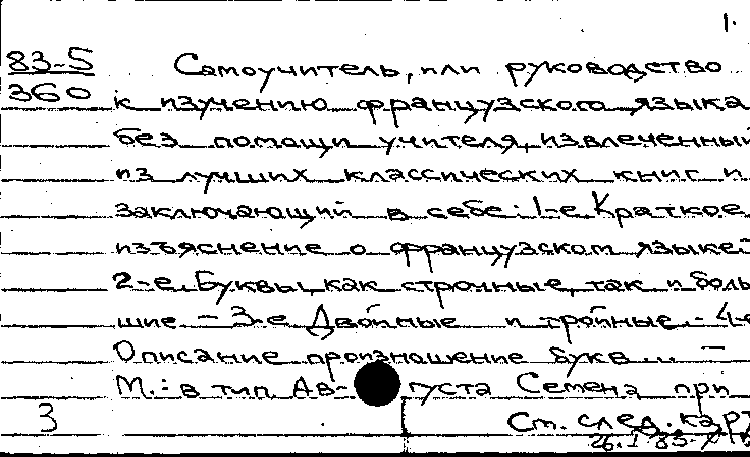 1.
83-5
360
Самоучитель, или руководство
к изучению французского языка
без помощи учителя, извлеченный
из лучших классических книг и
заключающий в себе: 1-е. Краткое
изъяснение о французском языке.-
2-е. Буквы, как строчные, так и боль
шие - 3-е Двойные и тройные. - 4-е
Описание произношение букв... -
М.: в тип. Ав- густа Семена при
3
См. след. карт
26.I 83-